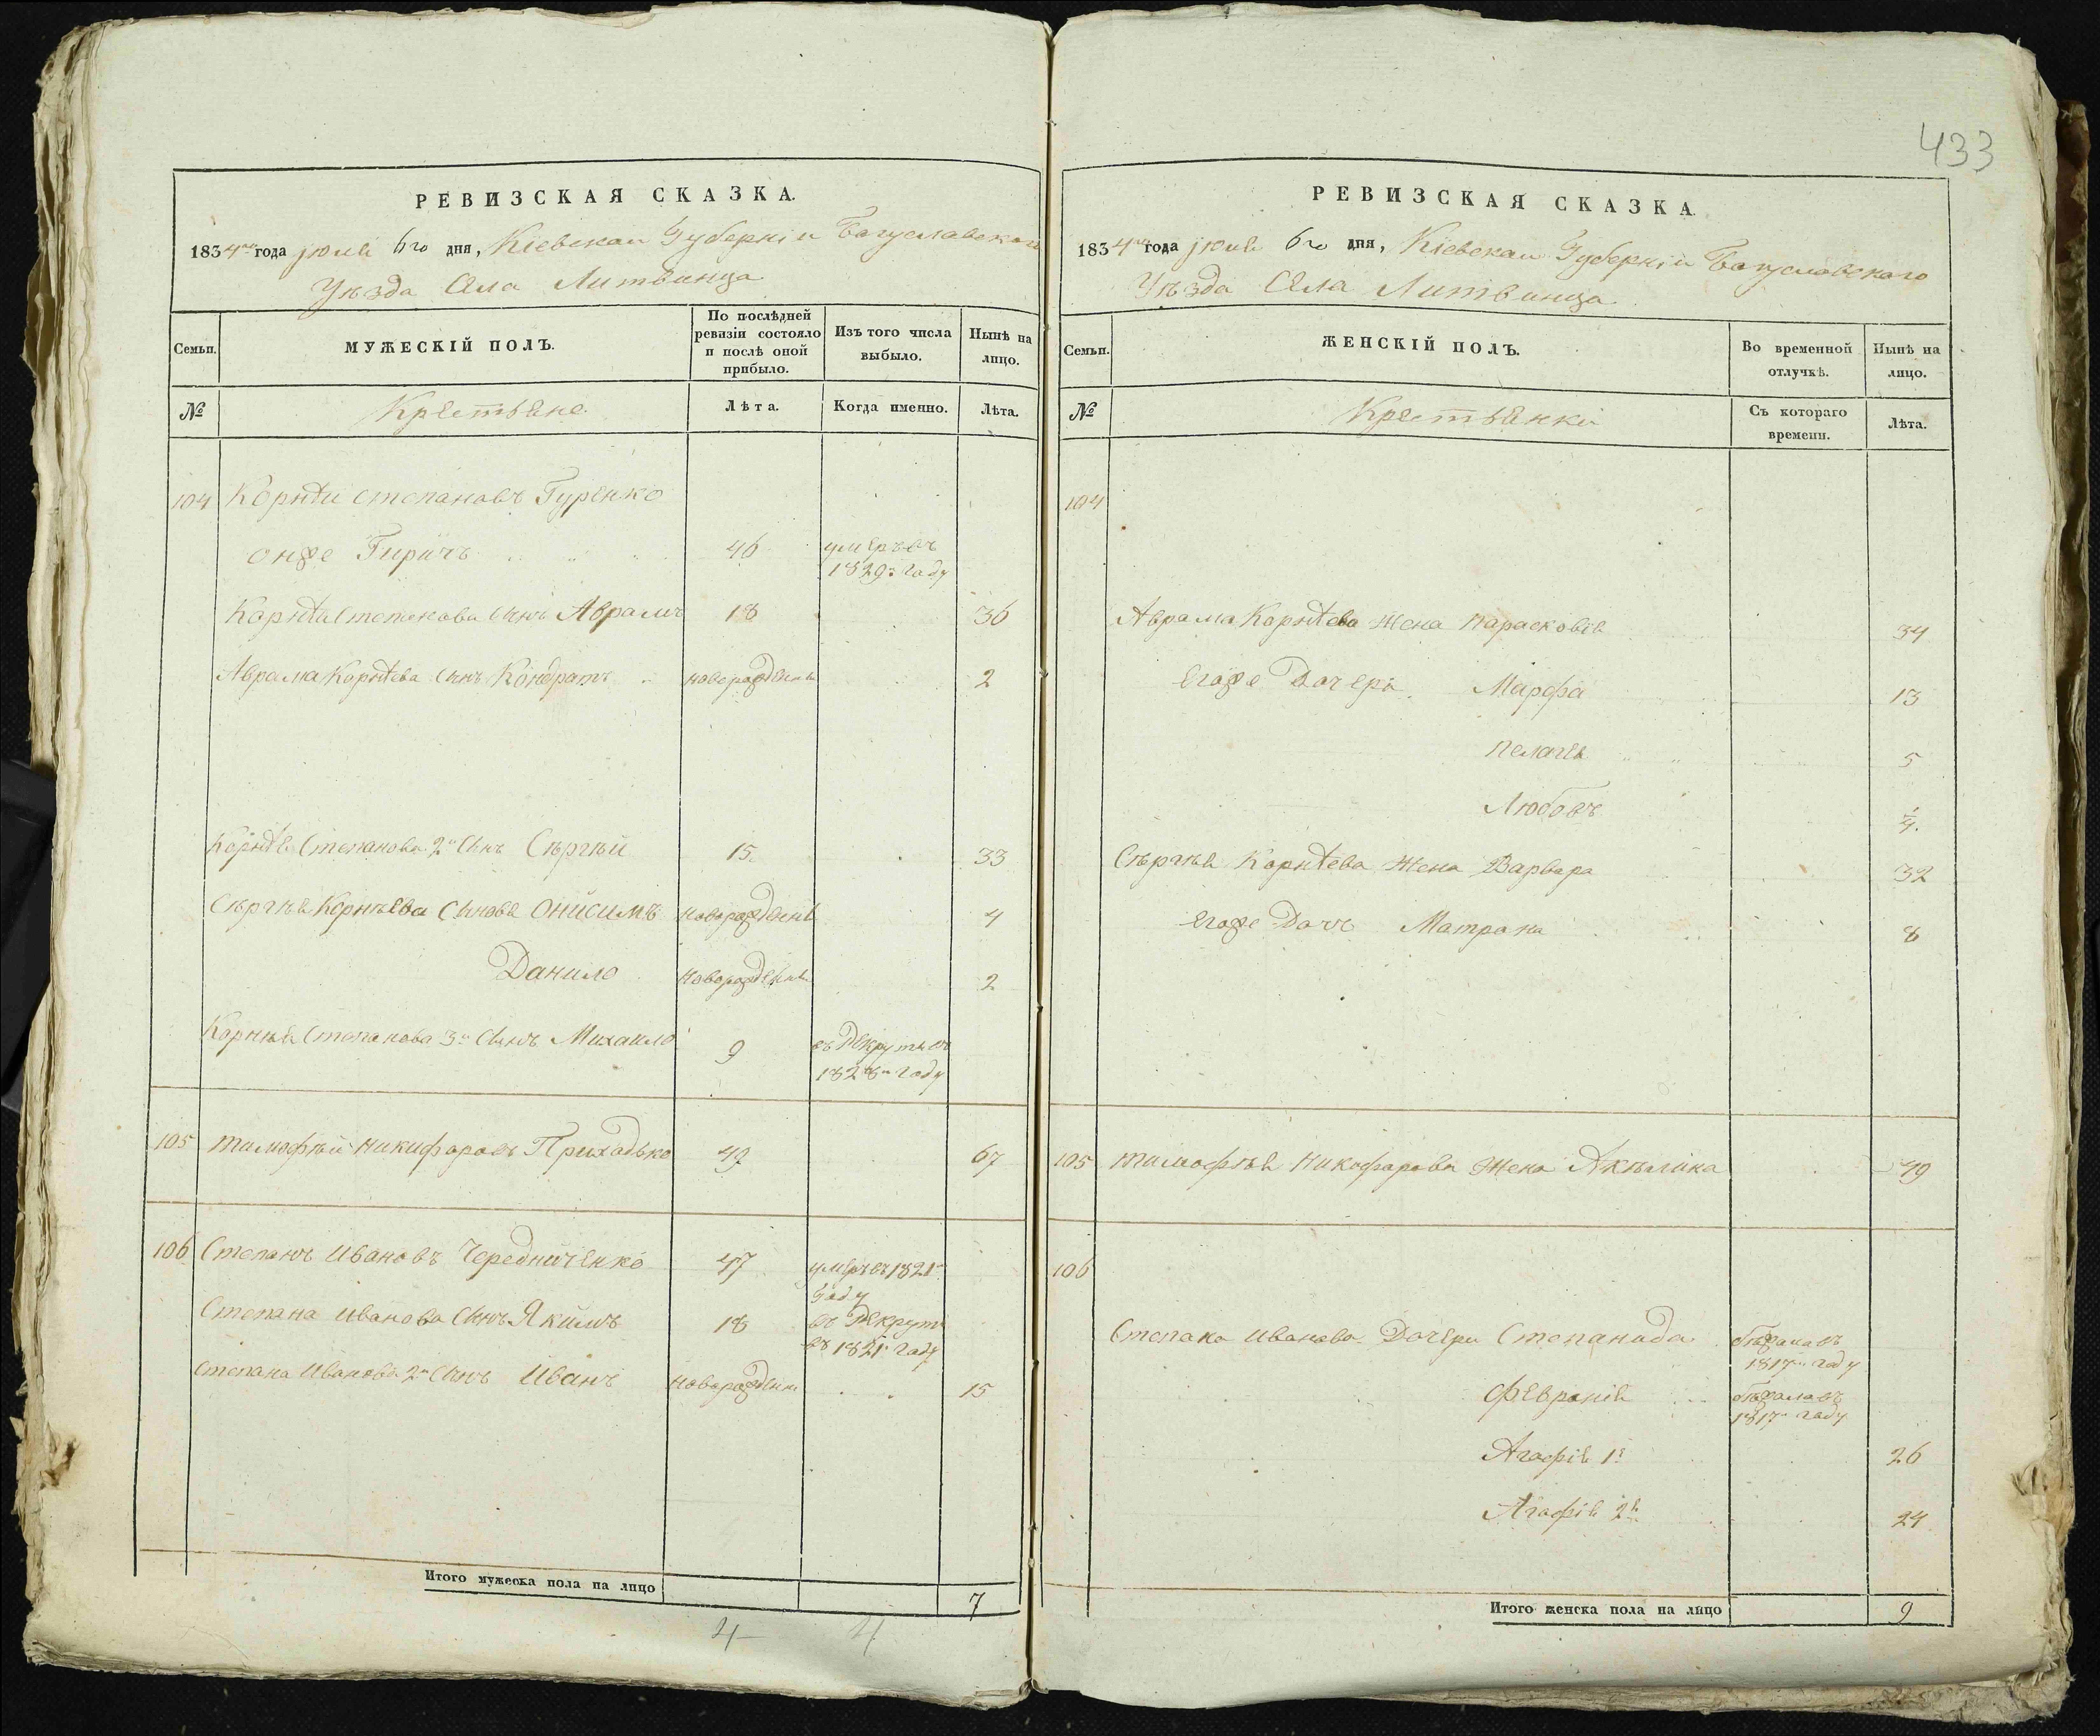 433
РЕВИЗСКАЯ СКАЗКА.
1834го года июля 6го дня, Кіевской Губерніи Богуславскаго
Уѣзда Села Литвинца
Семьи.
МУЖЕСКІЙ ПОЛЪ.
По послѣдней ревизіи состояло и послѣ оной прибыло.
Изъ того числа выбыло.
Нынѣ на лицо.
№
Крестьяне
Лѣта.
Когда именно.
Лѣта.
104 Корнѣй Степановъ Гуренко
онже Гиричъ 46 умеръ въ
1829м году
Корнѣя Степанова Сынъ Аврамъ 18 36
Аврама Корнѣева Сынъ Кондратъ новорожденъ 2
Корнѣя Степанова 2й Сынъ Сѣргѣй 15 33
Сѣргѣя Корнѣева Сыновья Онисимъ новорожденъ 4
Данило новорожденъ 2
Корнѣя Степанова 3й Сынъ Михайло 9 въ рекруты въ
1828м году
105 Тимофѣй Никифоровъ Приходько 49 67
106 Степанъ Ивановъ Чередниченко 47 умеръ въ 1821м
году
Степана Иванова Сынъ Якимъ 18 въ рекруты
въ 1821м году
Степана Иванова 2й Сынъ Иванъ новорожденъ 15
Итого мужеска пола на лицо 7
4 4
РЕВИЗСКАЯ СКАЗКА
1834го года июля 6го дня, Кіевской Губерніи Богуславскаго
Уѣзда Села Литвинца
Семьи.
ЖЕНСКІЙ ПОЛЪ.
Во временной отлучкѣ.
Нынѣ на лицо.
№
Крестьянки
Съ котораго времени.
Лѣта.
104
Аврама Корнѣева Жена Парасковія 34
Егоже Дочери Марфа 13
Пелагея 5
Любовъ
Сѣргѣя Корнѣева Жена Варвара 32
Егоже Дочъ Матрона 8
105 Тимофѣя Никифорова Жена Акѣлина 49
106
Степана Иванова Дочери Степанида бѣжала въ
1817м году
Февронія бѣжала въ
1817м году
Агафія 1я 26
Агафія 2я 24
Итого женска пола на лицо 9